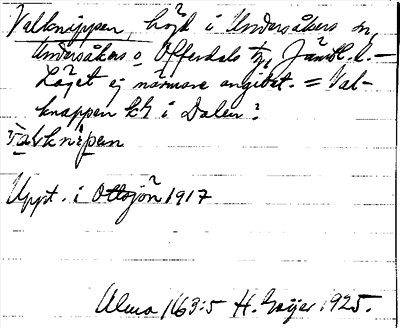 Valknippen, höjd i Undersåkers sn,
Undersåkers o. Offerdals tg, Jämtl. l. —
Läget ej närmare angivet. = Val-
knappen k1 i Dalen?
valknipen
Uppt. i Ottsjön 1917
Ulma 163:5 H. Geijer 1925.